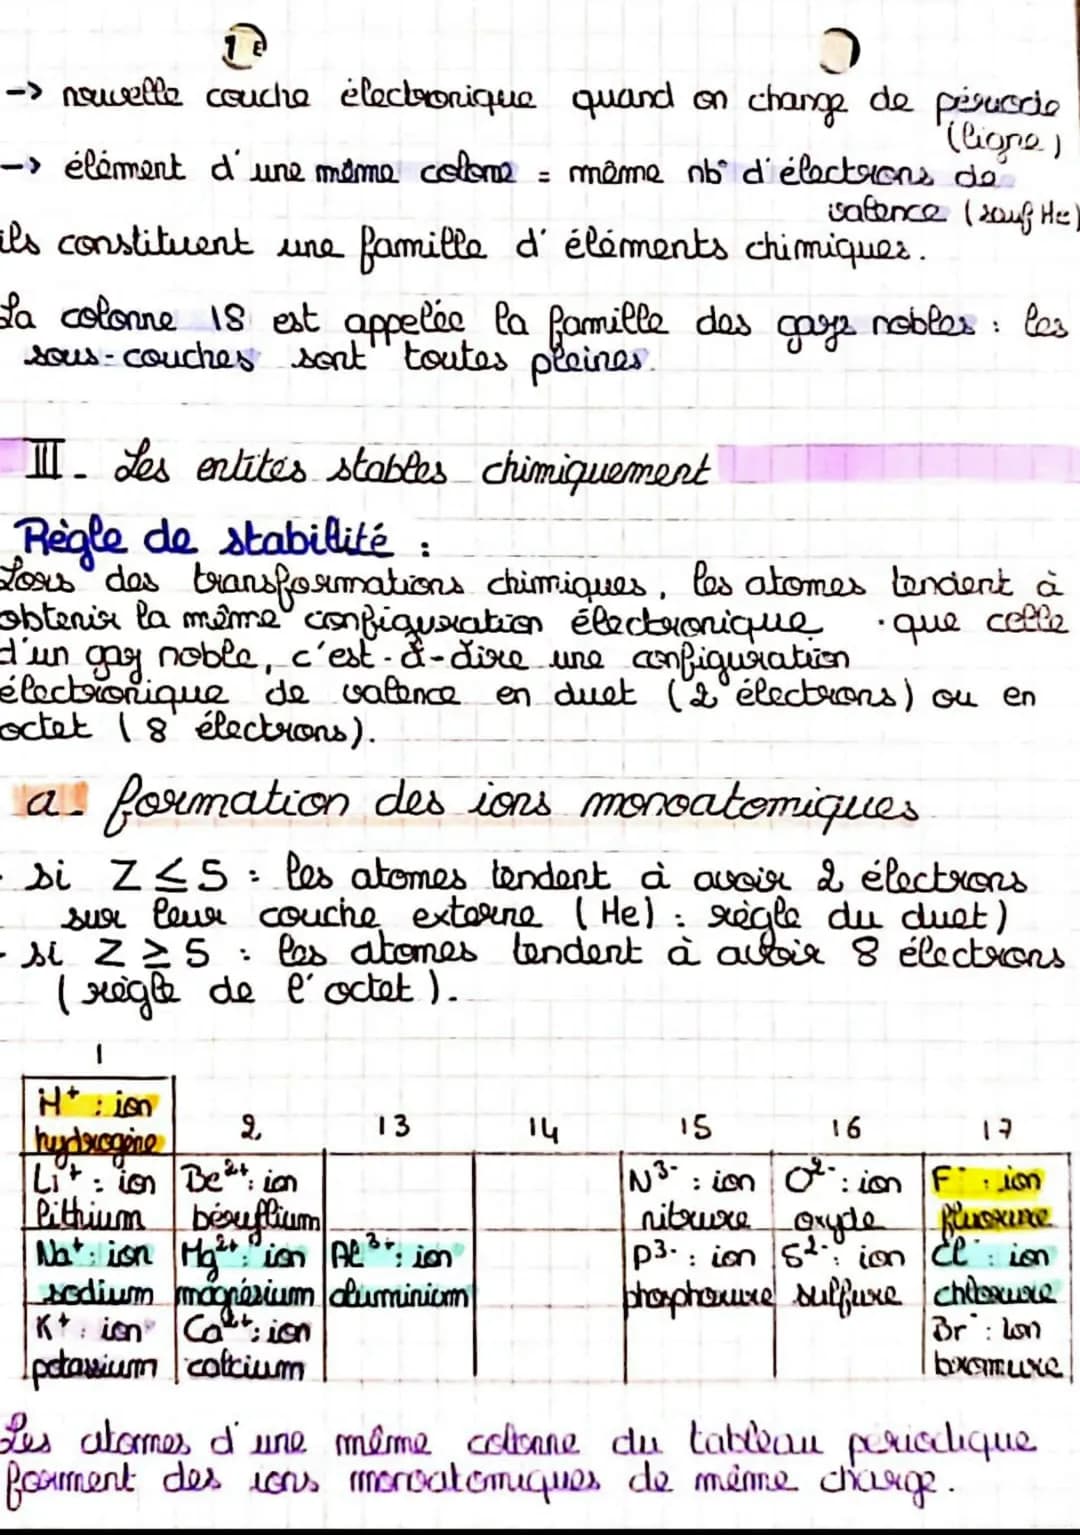 1 E
→ nouvelle couche électronique quand on change de période
(ligne)
→ élément d'une même colone = même nb° d'électrons de
valence (sauf He)
ils constituent une famille d'éléments chimiques.
La colonne 18 est appelée la famille des gays nobles : les
sous-couches sont toutes pleines.
III - Les entités stables chimiquement
Règle de stabilité :
Lors des transformations chimiques, les atomes tendent à
obtenir la même configuration électronique que celle
d'un gay noble, c'est-à-dire une configuration
électronique de valence en duet (2 électrons) ou en
octet (8 électrons).
a - formation des ions monoatomiques
- si Z ≤ 5 : les atomes tendent à avoir 2 électrons
sur leur couche externe (He) : règle du duet)
- si Z ≥ 5 : les atomes tendent à avoir 8 électrons
(règle de l'octet).
1
H⁺ : ion
hydrogène 2 13 14 15 16 17
Li⁺ : ion Be²⁺ : ion N³⁻ : ion O²⁻ : ion F⁻ : ion
lithium béryllium nitrure oxyde fluorure
Na⁺ : ion Mg²⁺ : ion Al³⁺ : ion P³⁻ : ion S²⁻ : ion Cl⁻ : ion
sodium magnésium aluminium phosphorure sulfure chlorure
K⁺ : ion Ca²⁺ : ion Br⁻ : ion
potassium calcium bromure
Les atomes d'une même colonne du tableau périodique
forment des ions monoatomiques de même charge.